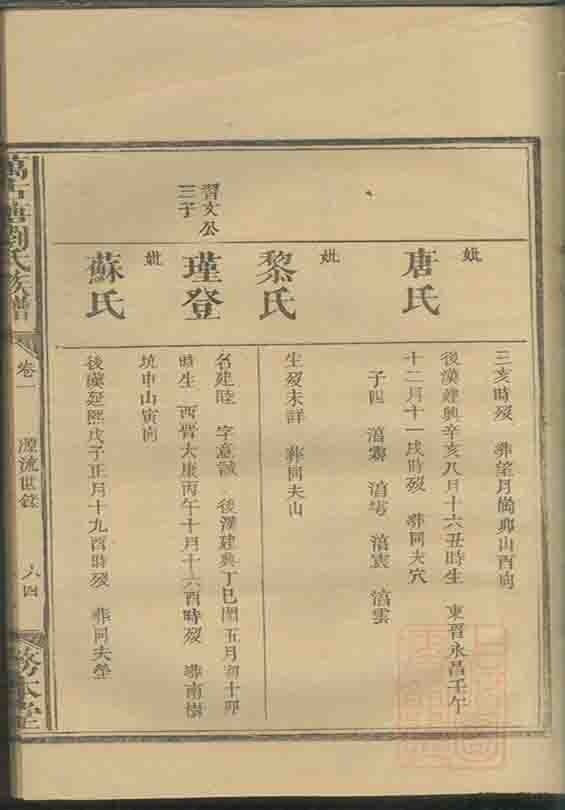 三亥時歿 葬望月崗卯山酉向
妣
唐氏
後漢建興辛亥八月十六丑時生 東晋永昌壬午
十二月十一戌時歿 葬同夫穴
子四
妣
黎氏
生歿未詳 葬同夫山
習文公
三子
瑾登
名建陸 字意誠 後漢建興丁巳閏五月初十卯
時生 西晋太康丙午十月十六酉時歿 葬南嶺
坑申山寅向
妣
蘇氏
後漢延熙戊子正月十九酉時歿 葬同夫塋
萬石塘劉氏族譜
卷一
源流世錄
八四
務本堂